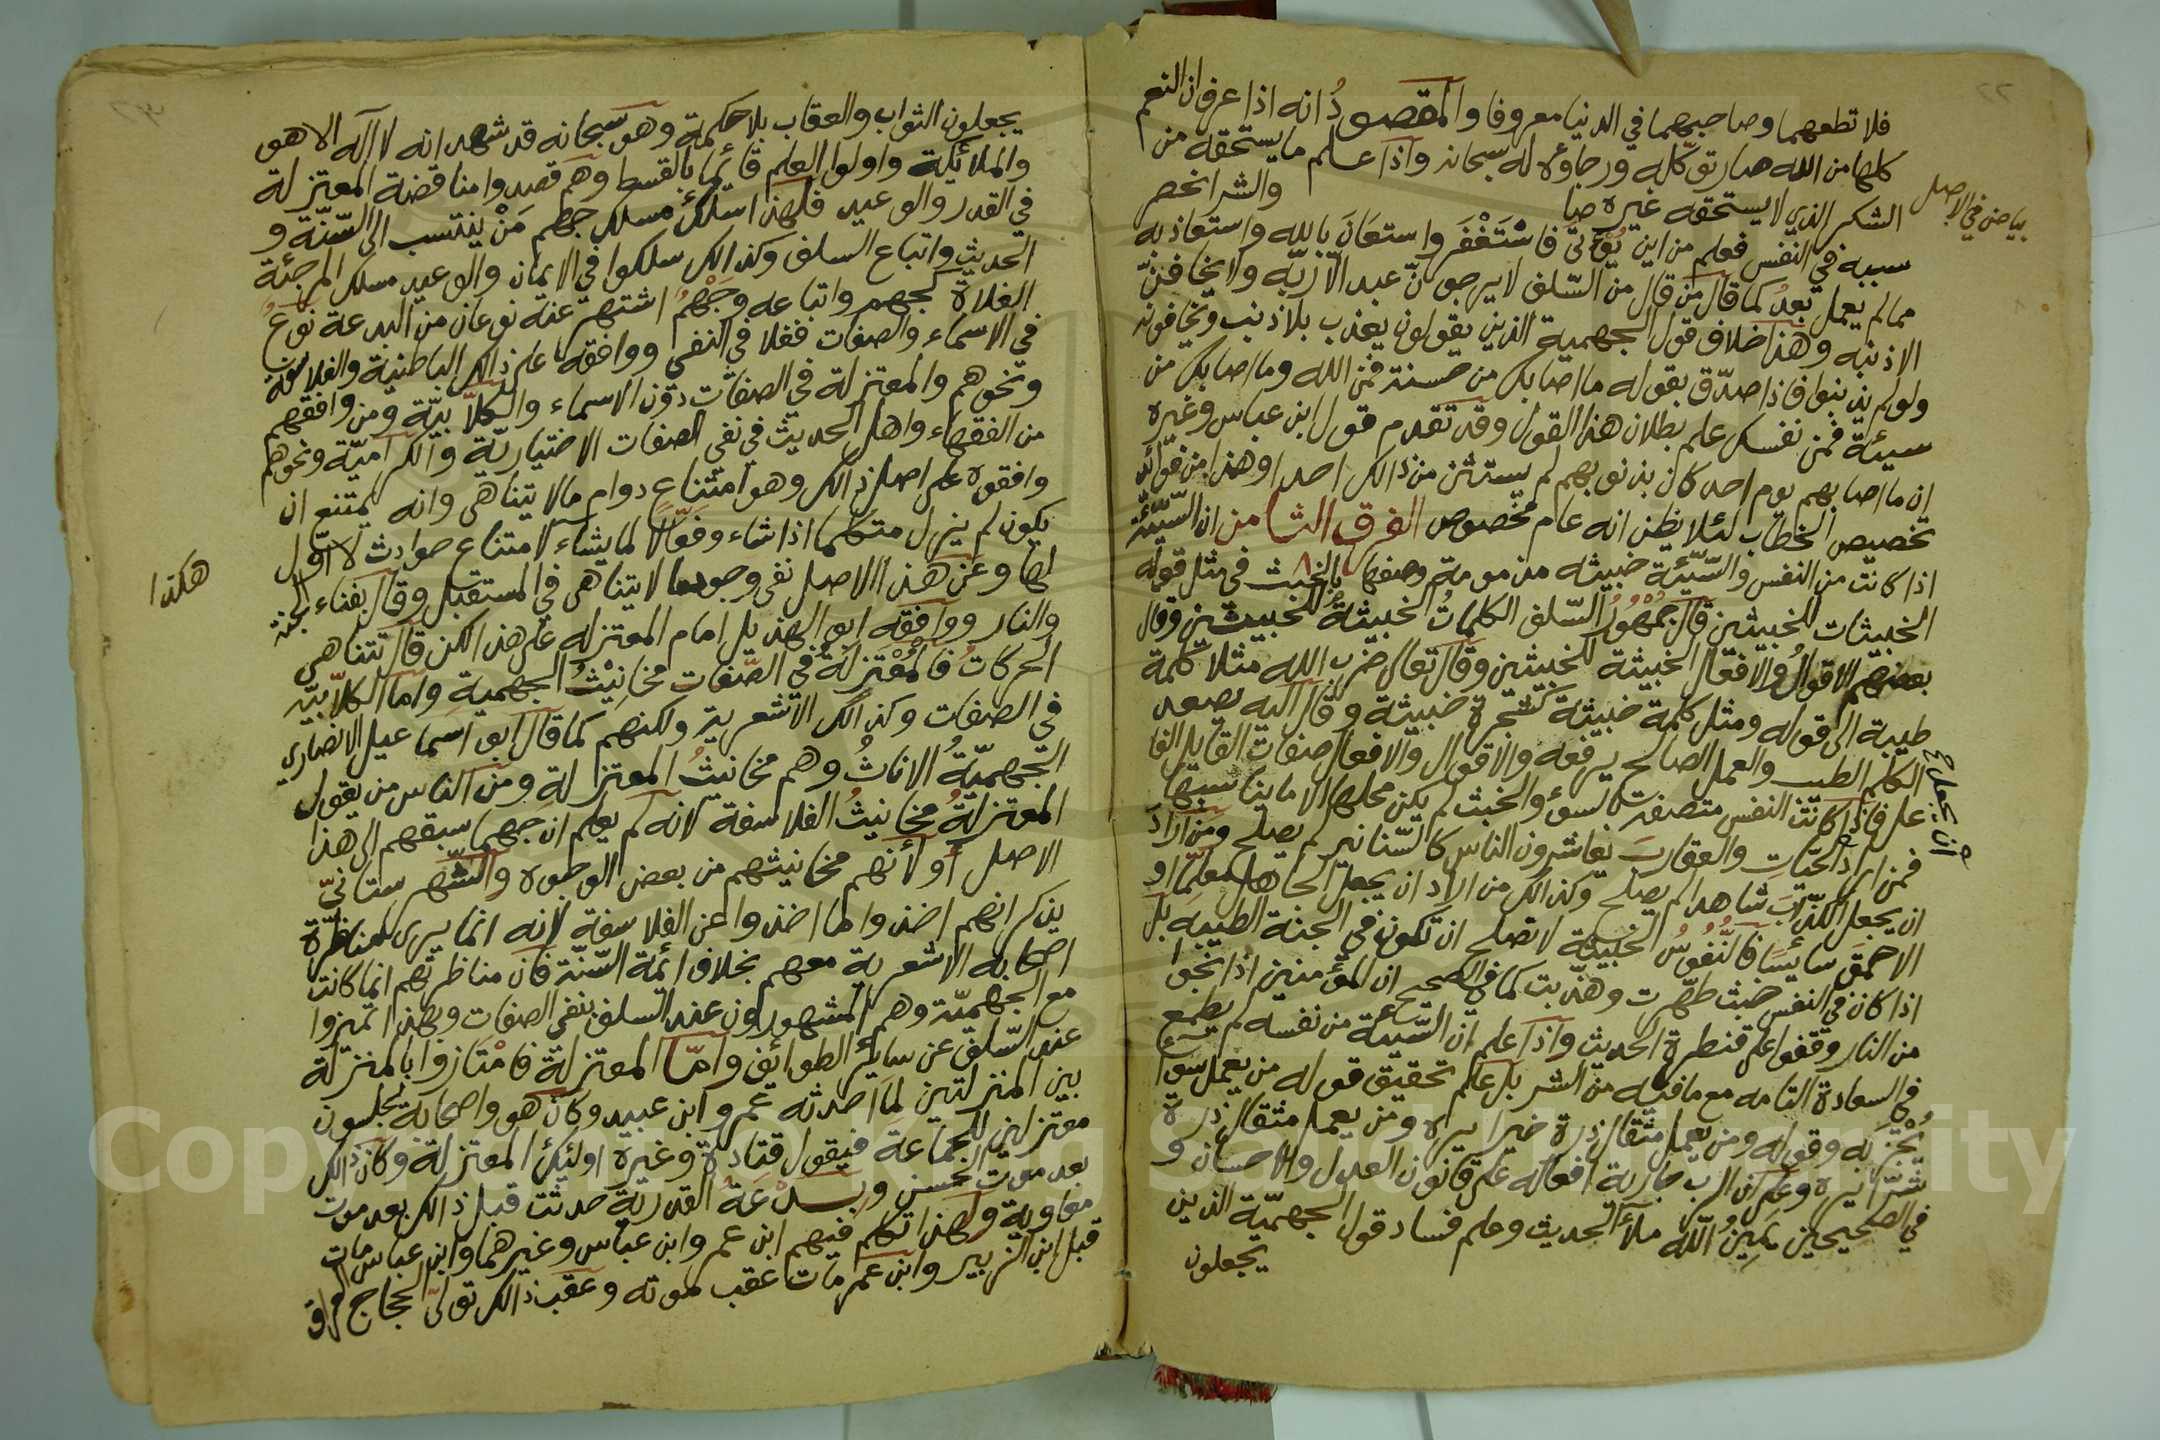 فلا تطعهما وصاحبهما في الدنيا معروفا والمقصود انه اذا عرف ان النعم
كلها من الله صار توكله ورجاؤه له سبحانه واذا علم ما يستحقه من
الشكر الذي لا يستحقه غيره صا والشر انحصر
بياض في الاصل
سببه في النفس فعلم من اين يؤتى فاستغفر واستعان بالله واستعاذ به
مما لم يعمل بعد كما قال من قال من السلف لا يرجون عبد الا ربه ولا يخافن
الا ذنبه وهذا خلاف قول الجهمية الذين يقولون يعذب بلا ذنب ويخافونه
ولو لم يذنبوا فاذا صدق بقوله ما اصابك من حسنة فمن الله وما اصابك من
سيئة فمن نفسك علم بطلان هذا القول وقد تقدم قول ابن عباس وغيره
ان ما اصابهم يوم احد كان بذنوبهم لم يستثن من ذالك احدا وهذا من فوائد
تخصيص الخطاب لئلا يظن انه عام مخصوص الفرق الثامن ان السيئة
اذا كانت من النفس والسيئة خبيثه مذمومة وصفها بالخبث في مثل قوله
الخبيثات للخبيثين قال جمهور السلف الكلمات الخبيثة للخبيثين وقال
بعضهم الاقوال والافعال الخبيثة للخبيثين وقال تعالى ضرب الله مثلا كلمة
طيبة الى قوله ومثل كلمة خبيثة كشجرة خبيثة وقال اليه يصعد
الكلم الطيب والعمل الصالح يرفعه والاقوال والافعال صفات القايل الفا
عل فاذا كانت النفس متصفة بالسوء والخبث لم يكن محلها الا ما يناسبها
فمن اراد الحيات والعقارب تعاشرون الناس كالسنانير لم يصلح ومن اراد
ان يجعل
ان يجعل الكذاب شاهدا لم يصلح وكذالك من اراد ان يجعل الجاهل معلما او
الاحمق سايسا فالنفوس الخبيثة لا تصلح ان تكون في الجنة الطيبة بل
اذا كان في النفس خبث طهرت وهذبت كما في الصحيح ان المؤمنين اذا نجوا
من النار وقفوا على قنطرة الحديث واذا علم ان السيئة من نفسه لم يطمع
في السعادة التامه مع ما فيه من الشر بل علم تحقيق قوله من يعمل سوءا
يجز به وقوله ومن يعمل مثقال ذرة خيرا يره ومن يعمل مثقال ذرة
شرا يره وعلم ان الرب جارية افعاله على قانون العدل والاحسان و
في الصحيحين يمين الله ملأ الحديث وعلم فساد قول الجهمية الذين
يجعلون
يجعلون الثواب والعقاب بلا حكمة وهو سبحانه قد شهد انه لا اله الا هو
والملائكة واولوا العلم قائما بالقسط وهم قصدوا مناقضة المعتزلة
في القدر والوعيد فلهذا سلك مسلك جهم من ينتسب الى السنة و
الحديث واتباع السلف وكذالك سلكوا في الايمان والوعيد مسلك المرجئة
الغلاة كجهم واتباعه وجهم اشتهر عنه نوعان من البدعة نوع
في الاسماء والصفات فغلا في النفي ووافقه على ذالك الباطنية والفلاسفة
ونحوهم والمعتزلة في الصفات دون الاسماء والكلابية ومن وافقهم
من الفقهاء واهل الحديث في نفي الصفات الاختيارية والكرامية ونحوهم
وافقوه على اصل ذالك وهو امتناع دوام ما لا يتناهى وانه يمتنع ان
يكون لم يزل متكلما اذا شاء وفعالا لما يشاء لامتناع حوادث لا اول
لها وعن هذا الاصل نفى وجود ما لا يتناهى في المستقبل وقال بفناء الجنة
هكذا
والنار ووافقه ابو الهذيل امام المعتزله على هذا لكن قال تتناهى
الحركات فالمعتزلة في الصفات مخانيث الجهمية واما الكلابية
في الصفات وكذالك الاشعرية ولكنهم كما قال ابو اسماعيل الانصاري
الجهمية الاناث وهم مخانيث المعتزلة ومن الناس من يقول
المعتزلة مخانيث الفلاسفة لانه لم يعلم ان جهما سبقهم الى هذا
الاصل او لانهم مخانيثهم من بعض الوجوه والشهرستاني
يذكر انهم اخذوا ما اخذوا عن الفلاسفة لانه انما يرى مناظرة
اصحابه الاشعرية معهم بخلاف ائمة السنة فان مناظرتهم انما كانت
مع الجهمية وهم المشهورون عند السلف بنفي الصفات وبهذا تميزوا
عند السلف عن ساير الطوائف واما المعتزلة فامتازوا بالمنزلة
بين المنزلتين لما احدثه عمرو ابن عبيد وكان هو واصحابه يجلسون
معتزلين للجماعة فيقول قتادة وغيره اولئك المعتزلة وكان ذالك
بعد موت الحسن وبدعة القدرية حدثت قبل ذالك بعد موت
معاوية ولهذا تكلم فيهم ابن عمر وابن عباس وغيرهما وابن عباس مات
قبل ابن الزبير وابن عمر مات عقب موته وعقب ذالك تولى الحجاج العراق
Copyright © King Saud University